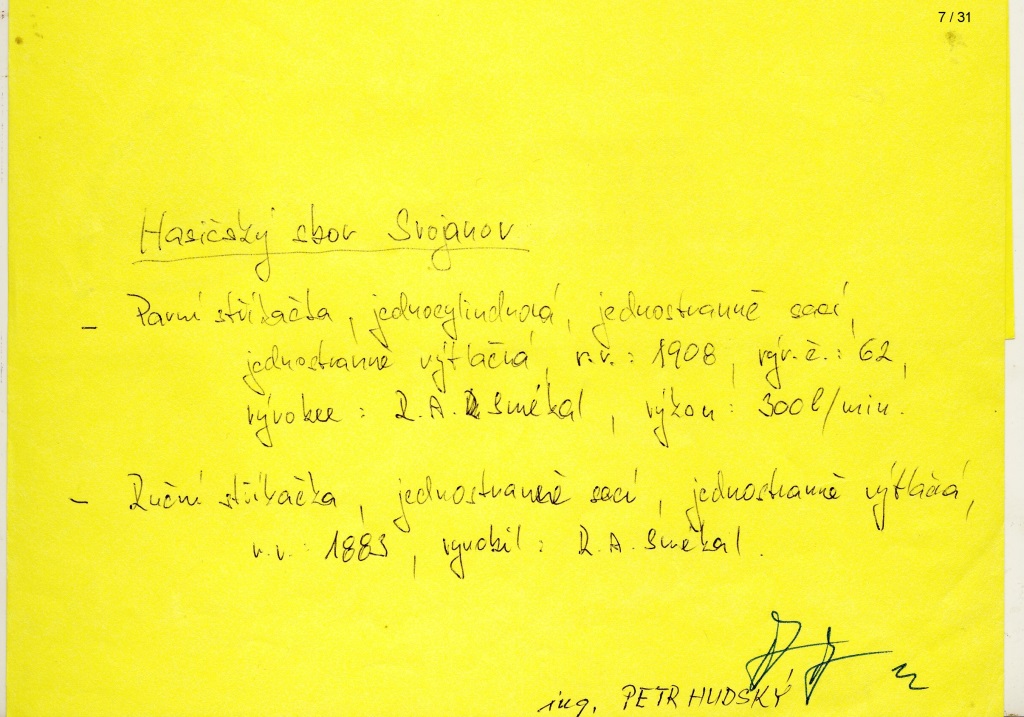 7 / 31
Hasičský sbor Svojanov
- Parní stříkačka, jednocylindrová, jednostranně sací,
jednostranně výtlačná, r.v.: 1908, výr.č.: 62,
výrobce: R.A. Smékal, výkon: 300 l/min.
- Ruční stříkačka, jednostranně sací, jednostranně výtlačná,
r.v.: 1883, vyrobil: R.A. Smékal.
ing. PETR HUDSKÝ